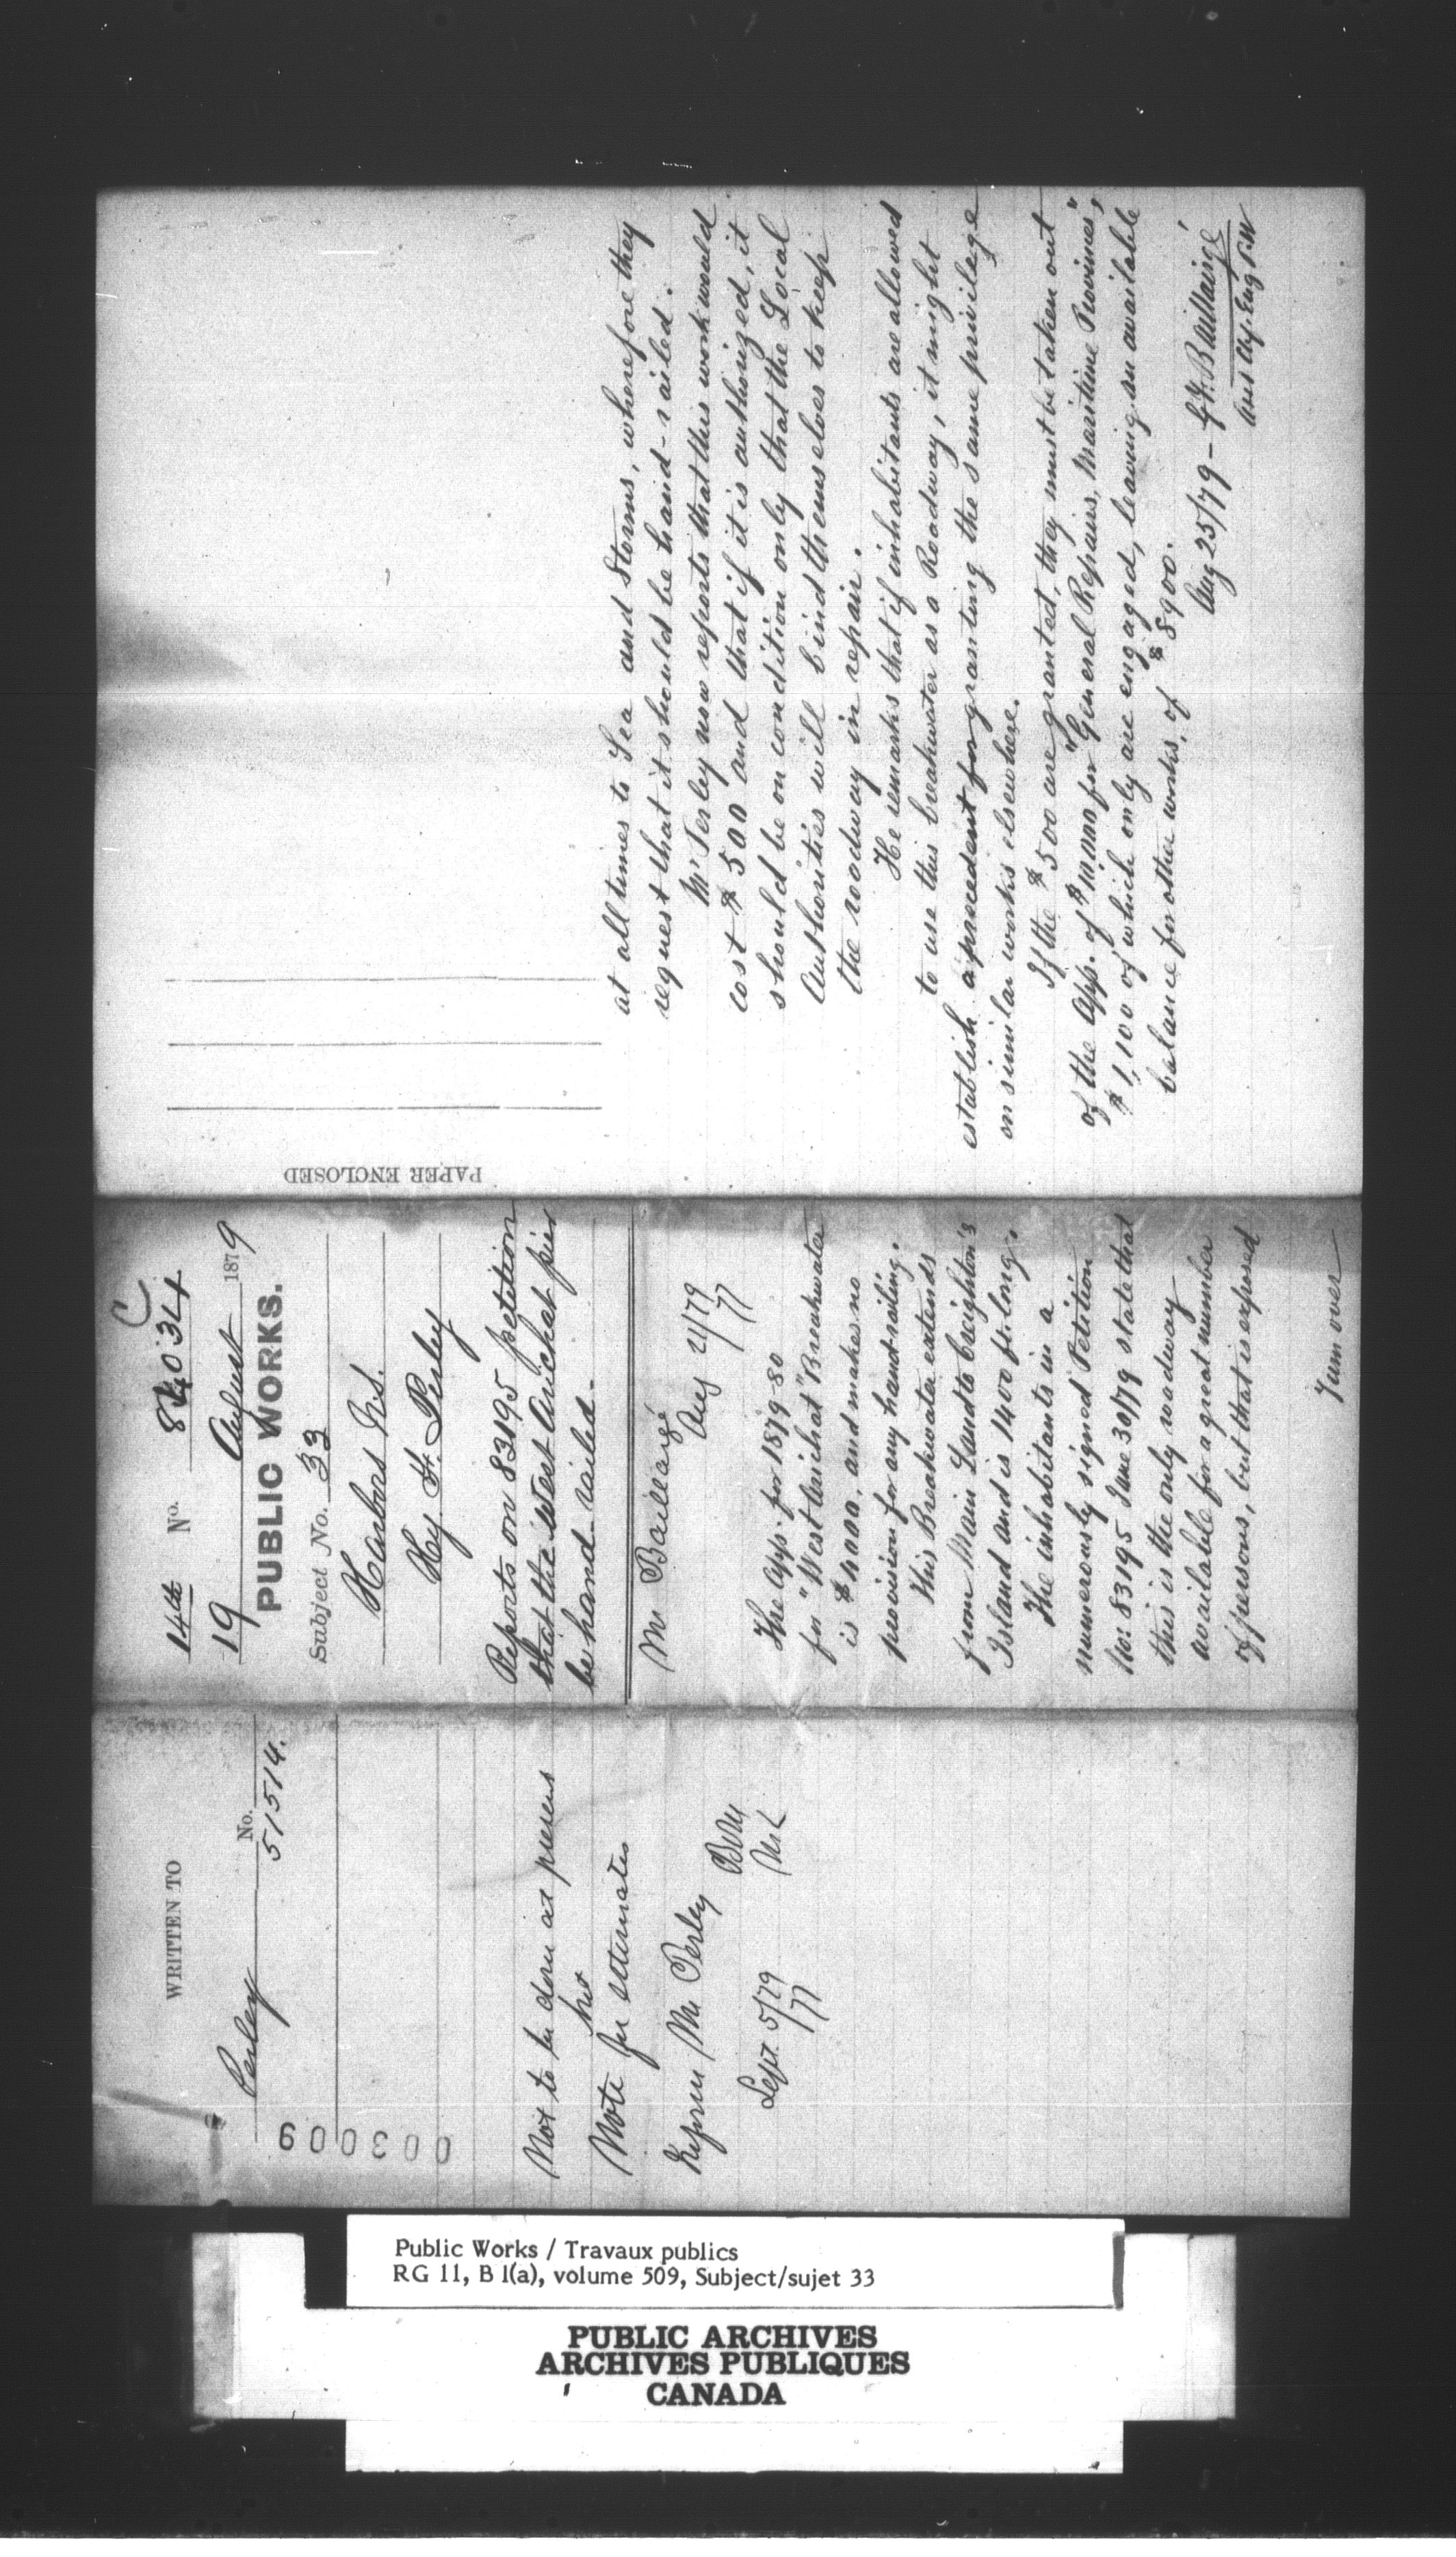 WRITTEN TO
No.
Perley 51514.
003009
Not to be done at present
but
Note for estimates
Inform Mr Perley
Sept. 5/79
C
14th No. 84034
19 August 1879
PUBLIC WORKS.
Subject No. 33
Harbors N.S.
Hy. F. Perley
Reports on 83195 petition
that the West Arichat pier
be hand-railed.
Mr Baillairgé
Aug 21/79
The App. for 1879-80
for "West Arichat" Breakwater
is $4000, and makes no
provision for any handrailing.
This Breakwater extends
from Main Land to Creighton's
Island and is 1400 ft. long.
The inhabitants in a
numerously signed Petition
No: 83195 June 30/79 state that
this is the only roadway
available for a great number
of persons, but that is exposed
Turn over
PAPER ENCLOSED
at all times to Sea and Storms, wherefore they
request that it should be hand-railed.
Mr Perley now reports that this work would
cost $500 and that if it is authorized, it
should be on condition only that the Local
Authorities will bind themselves to keep
the roadway in repair.
He remarks that if inhabitants are allowed
to use this breakwater as a Roadway, it might
establish a precedent for granting the same privilege
on similar works elsewhere.
If the $500 are granted, they must be taken out
of the App. of $10,000 for "General Repairs, Maritime Provinces",
$1,100 of which only are engaged, leaving an available
balance for other works, of $8900.
Aug 25/79 - G.F. Baillairgé